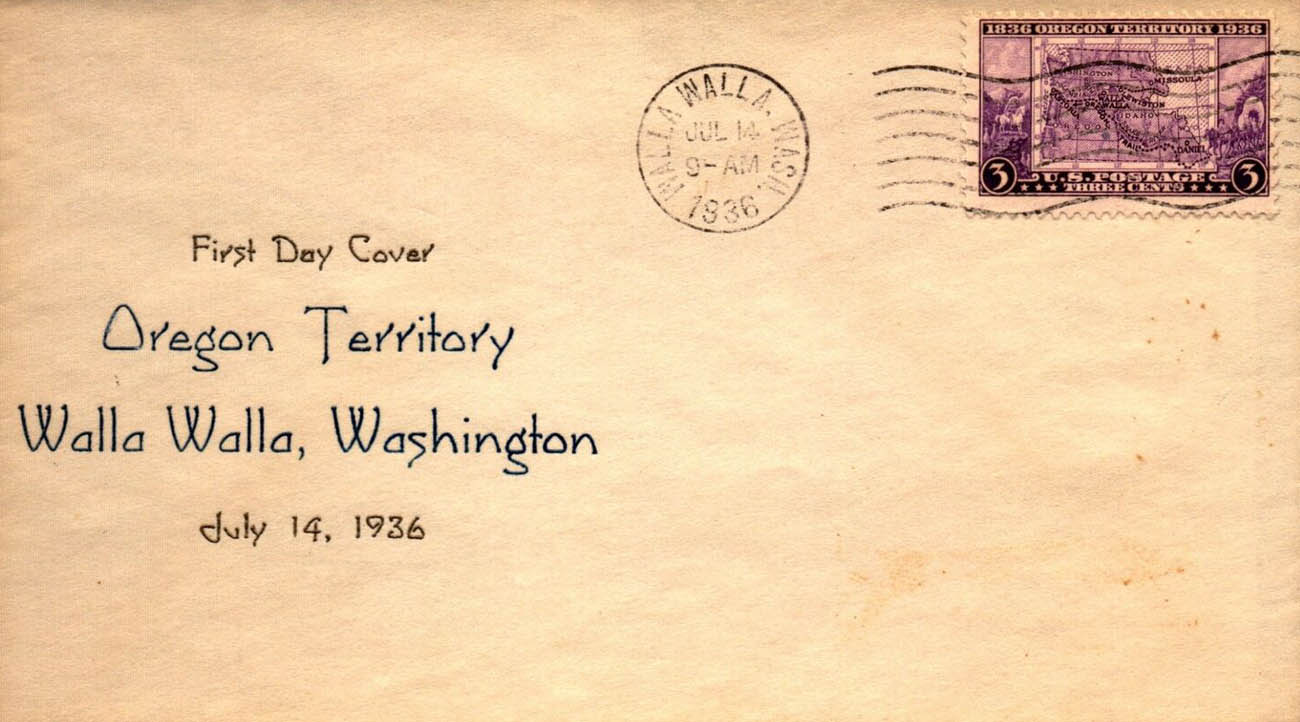 1836 OREGON TERRITORY 1936
WASHINGTON
MISSOULA
WALLA
WALLA
LEWISTON
IDAHO
OREGON
TRAIL
DANIEL
3 U.S. POSTAGE 3
THREE CENTS
WALLA WALLA, WASH.
JUL 14
9-AM
1936
First Day Cover
Oregon Territory
Walla Walla, Washington
July 14, 1936